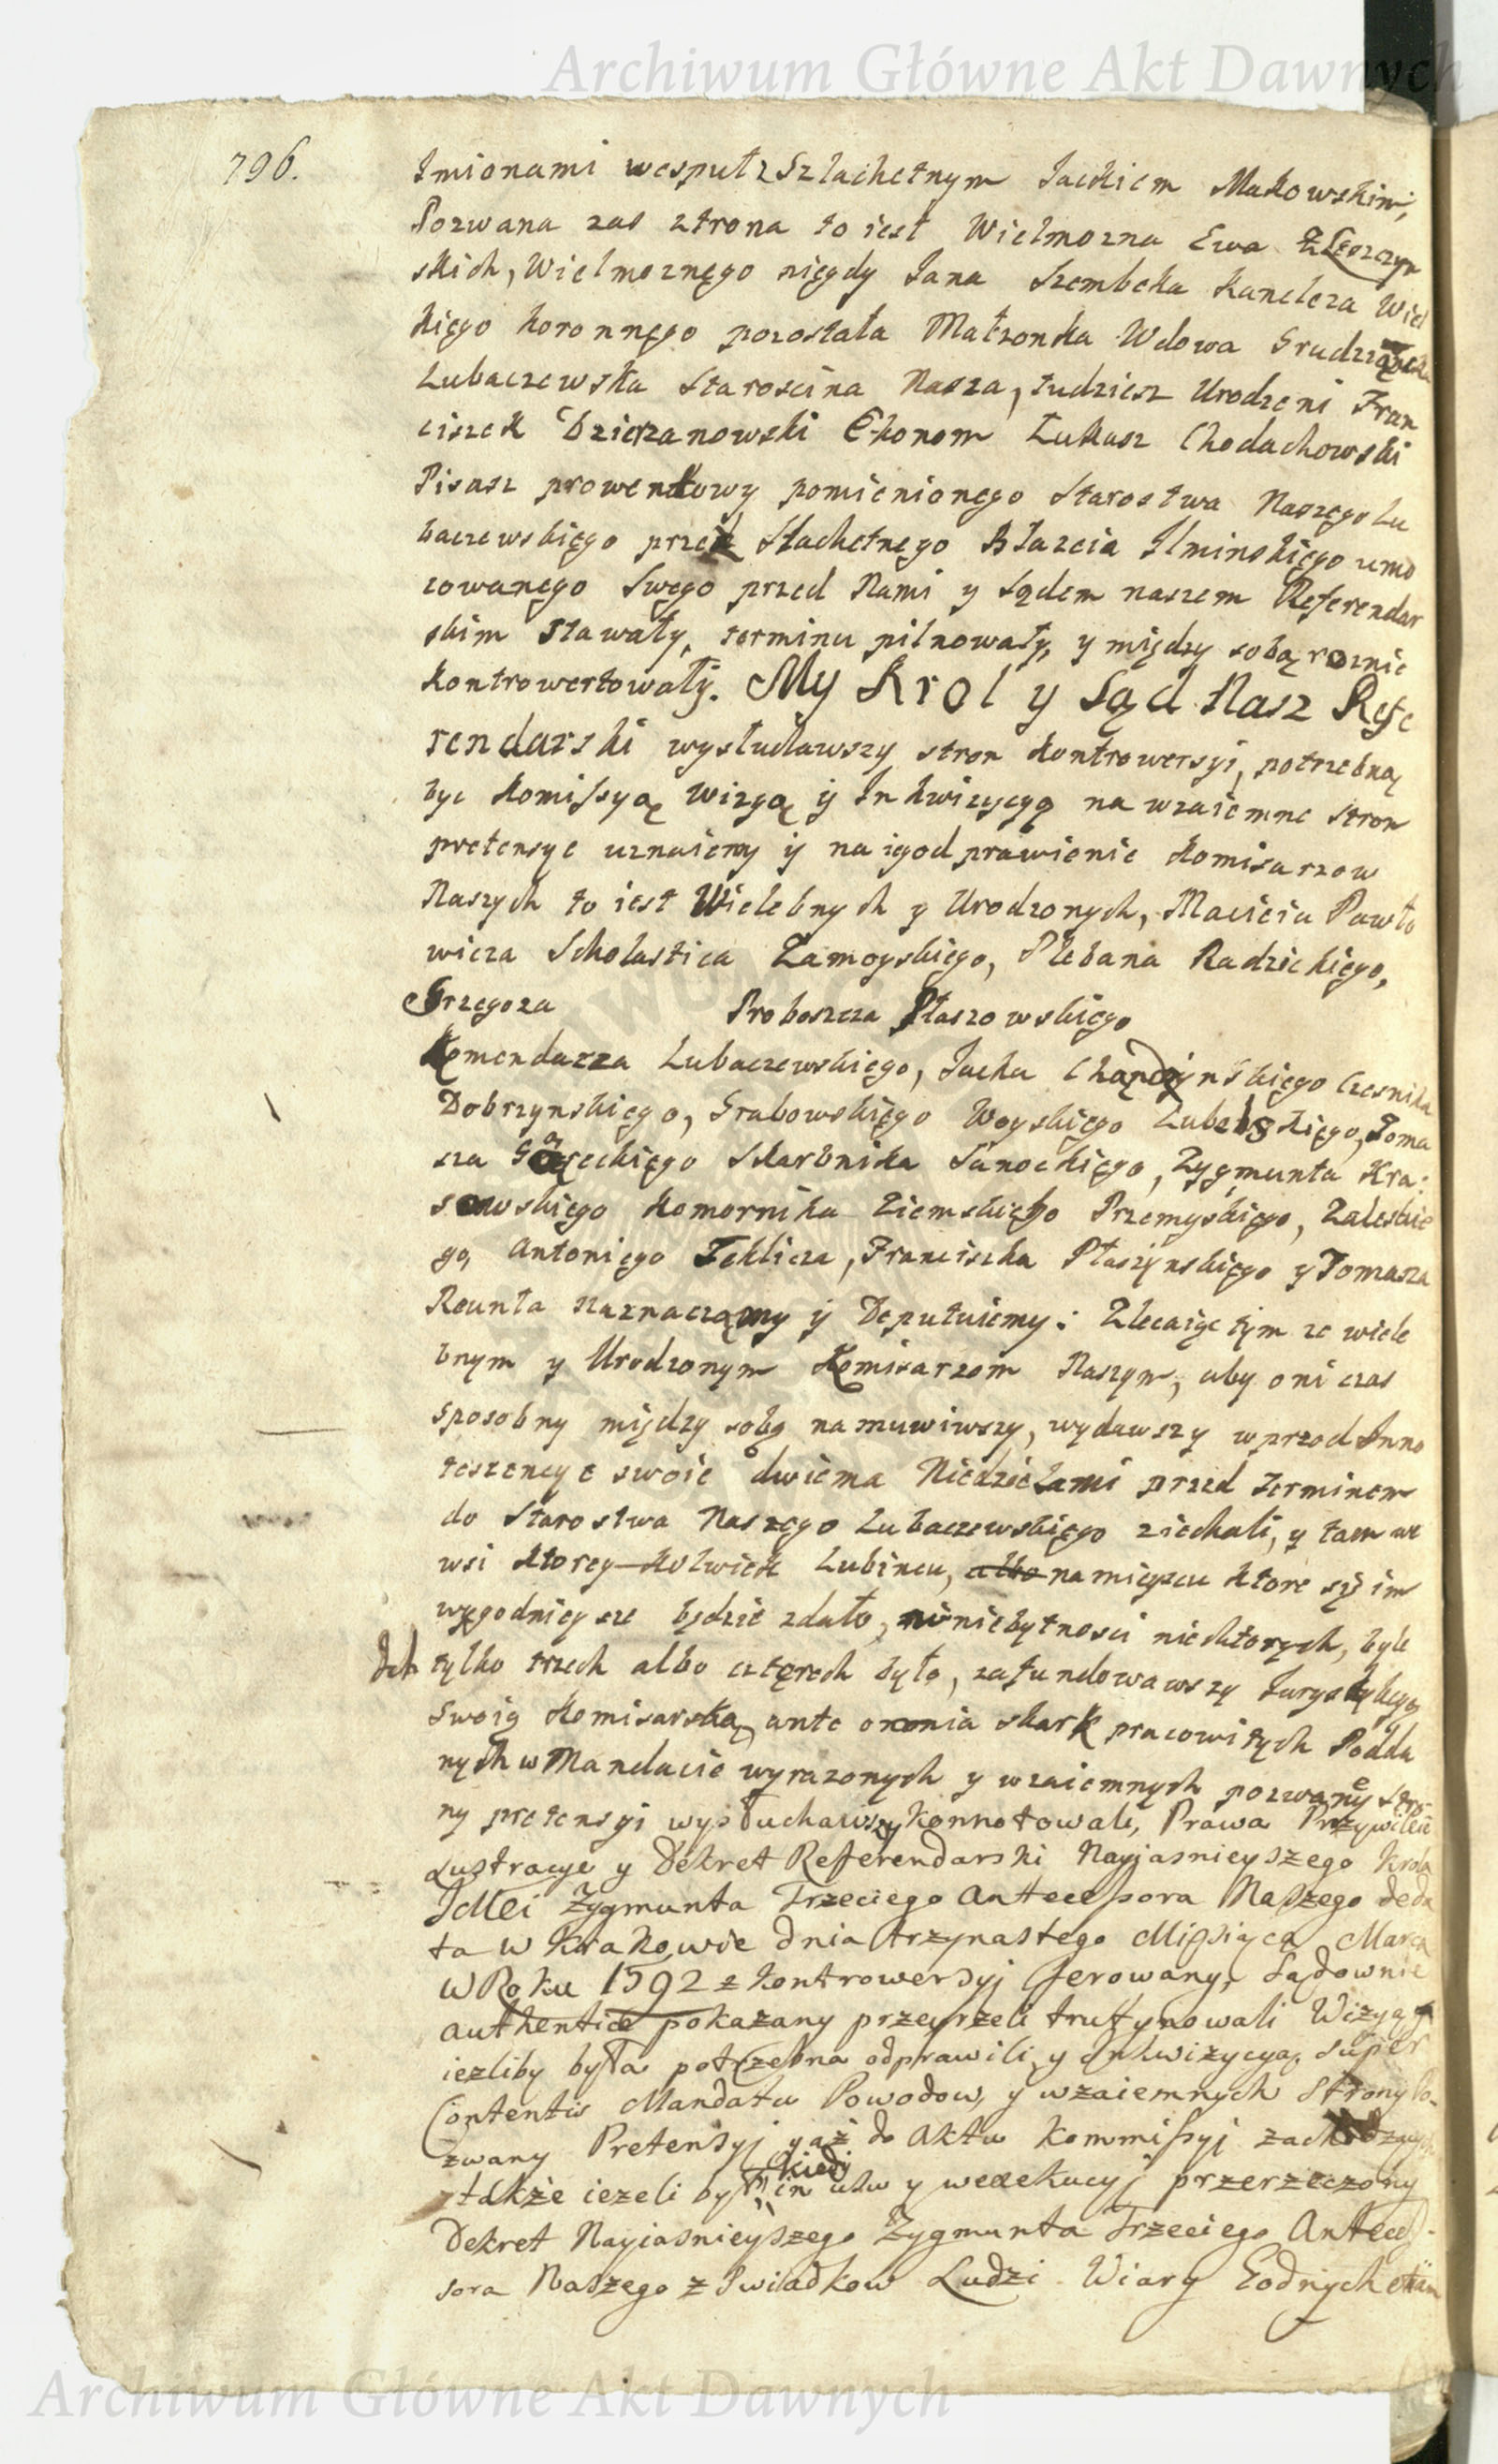 Archiwum Główne Akt Dawnych
796.
Imionami wespuł z Szlachetnym Jackiem Makowskim,
Pozwana zas ztrona to iest Wielmozna Ewa z Leszczyn
skich, Wielmoznęgo nięgdy Jana Szembeka Kanclerza Wiel
kięgo koronnęgo pozostała Małzonka Wdowa Grudziązka
Lubaczewska Staroscina Nasza, tudziesz Urodzęni Fran
ciszek Dzierzanowski Ekonom Łukasz Chodachowski
Pisasz prowentowy pomienionego Starostwa Naszęgo Lu
baczewskięgo przez Slachetnego Błazeia Ilminskięgo umo
cowanęgo Swęgo przed Nami y Sądem naszem Referendar
skim stawały, terminu pilnowały, y między sobą roznie
kontrowertowały. My Krol y Sąd Nasz Refe
rendarski wysłuchawszy stron kontrowersyi, potrzebną
byc komissyą wizyą ÿ Inkwizycyą na wzaiemne stron
pretensye uznaiemy ÿ na iey odprawienie komisarzow
Naszych to iest Wielebnych y Urodzonych, Macieia Pawło
wicza Scholastica Zamoyskięgo, Plebana Radzickięgo,
Grzegoza Proboszcza Płaszowskięgo
Komendarza Lubaczewskięgo, Jacka Chądzynskięgo Czesnika
Dobrzynskięgo, Grabowskięgo Woyskięgo Lubelskięgo, Toma
sza Goreckięgo Skarbnika Sanockięgo, Zygmunta Kra:
sowskięgo komornika Ziemskięgo Przemyskięgo, Zaleskie
go, Antonięgo Teklicza, Franciszka Ptaszynskięgo y Tomasza
Rounta Naznaczamy ÿ Deputuiemy: Zlecaiąc tym ze wiele
bnym y Urodzonym Komisarzom Naszym, aby oni czas
sposobny między sobą namuwiwszy, wydawszy wprzod Inno
teszencye swoie dwiema Niedzielami przed terminem
do Starostwa Naszęgo Lubaczewskięgo ziechali, y tam we
wsi ktorey-kolwiek Lubincu, albo na mieyscu ktore się im
wygodnięysze będzie zdało, nieniebytnosci niektorych, byle
Ich tylko trzech albo cztęrech było, zafundowawszy Jurysdykcyą
Swoią Komisarską, ante omnia skark pracowitych Podda
nych w Mandacie wyrazonych y wzaiemnych pozwaney stro
ny pretensyi wysłuchawszy konnotowali, Prawa Przywileie
Lustracye y Dekret Referendarski Nayjasnieyszego Krola
JMci Zygmunta Trzeciego Antecessora Naszego de da
ta w Krakowie dnia trzynastego Miesiąca Marca
w Roku 1592 z kontrowersyj ferowany, Sądownie
authentice pokazany przeyrzeli trutynowali Wizyą
iezliby była potrzebna odprawili y Inkwizycyą, super
Contentis Mandatu Powodow, y wzaiemnych strony Po-
zwany Pretensyj y aż do Aktu Kommissyj zachodzących
także iezeli był kiedy in usu y wexekucyj przerzeczony
Dekret Nayiasnieyszego Zygmunta Trzeciego Anteces-
sora Naszego z Swiadkow Ludzi Wiary Godnych etiam
Archiwum Główne Akt Dawnych